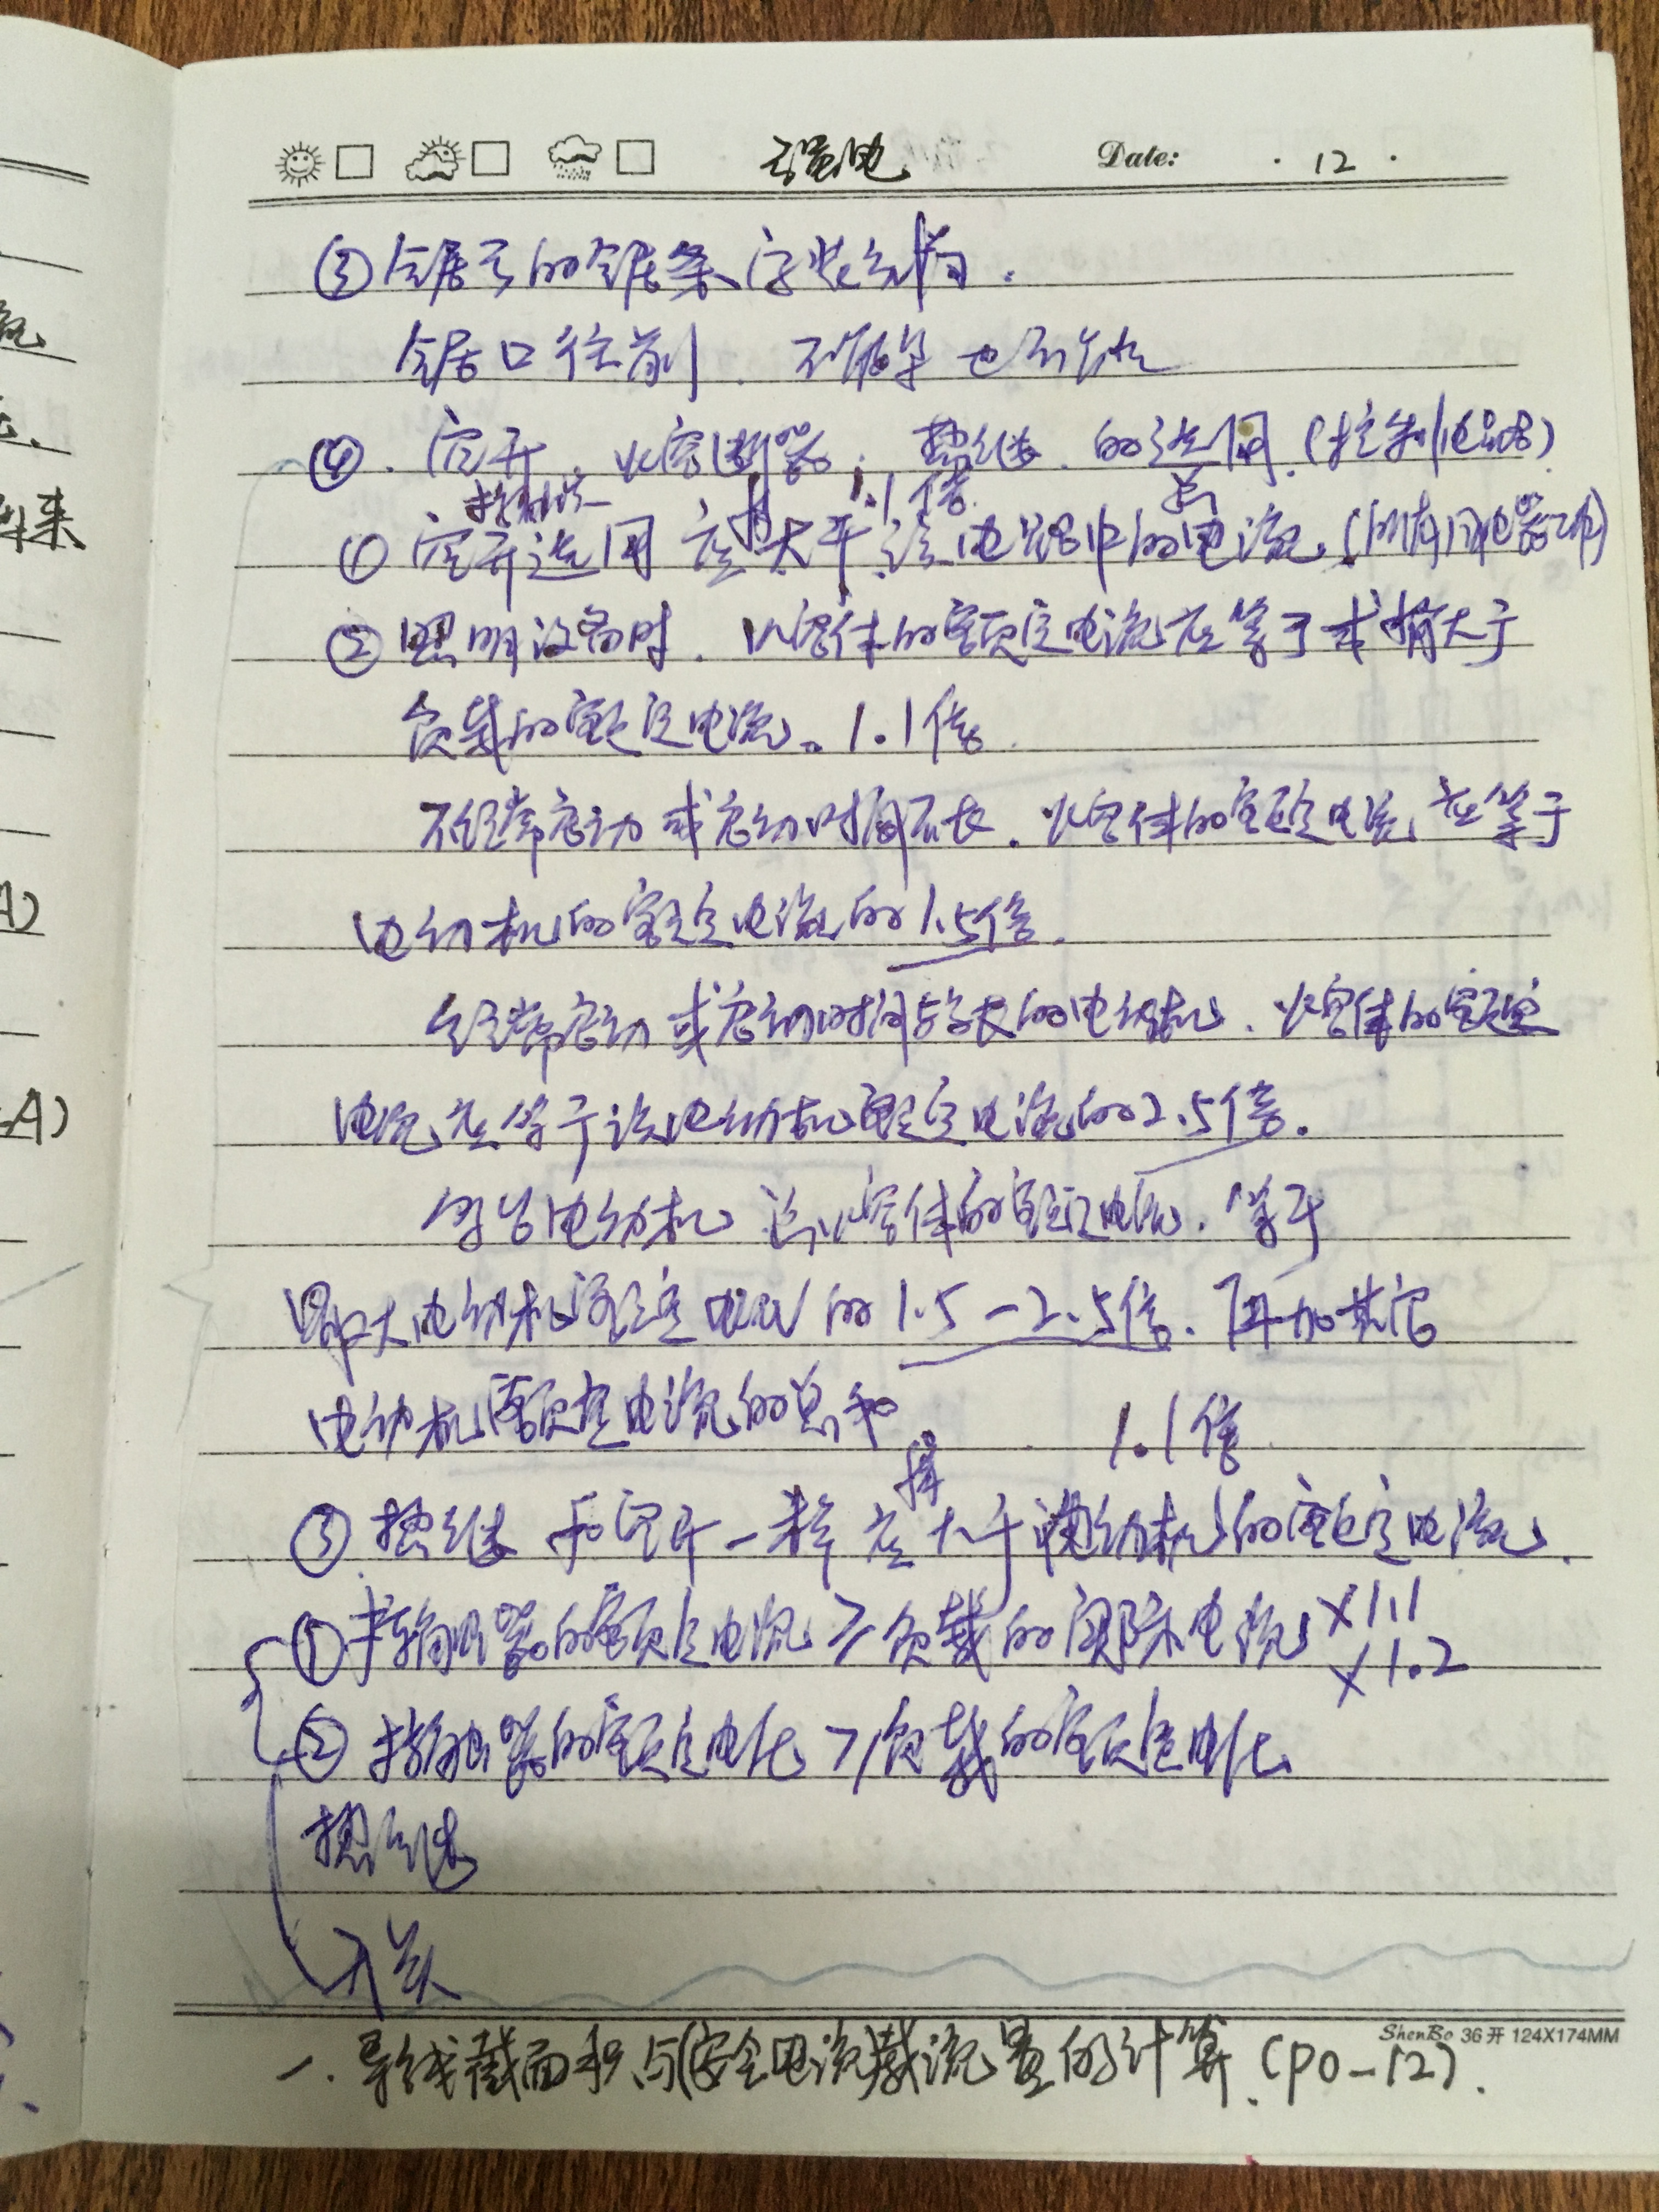 强电 Date: · 12 ·
③ 锯弓的锯条安装方向.
锯口往前. 不能 也不
④. 空开. 熔断器. 热继. 的选用. (控制电路)
稍 1.1倍 总
① 空开选用 应大于 该电路中的电流. (所有用电器)
② 照明设备时. 熔体的额定电流应等于或稍大于
负载的额定电流。1.1倍.
不经常启动或启动时间不长. 熔体的额定电流应等于
电动机的额定电流的1.5倍.
经常启动或启动时间较长的电动机. 熔体的额定
电流应等于该电动机额定电流的2.5倍.
多台电动机 总熔体的额定电流. 等于
最大电动机额定电流的1.5-2.5倍. 再加其它
电动机额定电流的总和 1.1倍
稍
③ 热继 和空开一样应大于电动机的额定电流.
① 的额定电流 ≥ 负载的实际电流 ×1.1
×1.2
② 的额定电压 ≥ 负载的额定电压
热继
开关
ShenBo 36开 124X174MM
一. 导线截面积与(安全电流)载流量的计算. (P0-12).